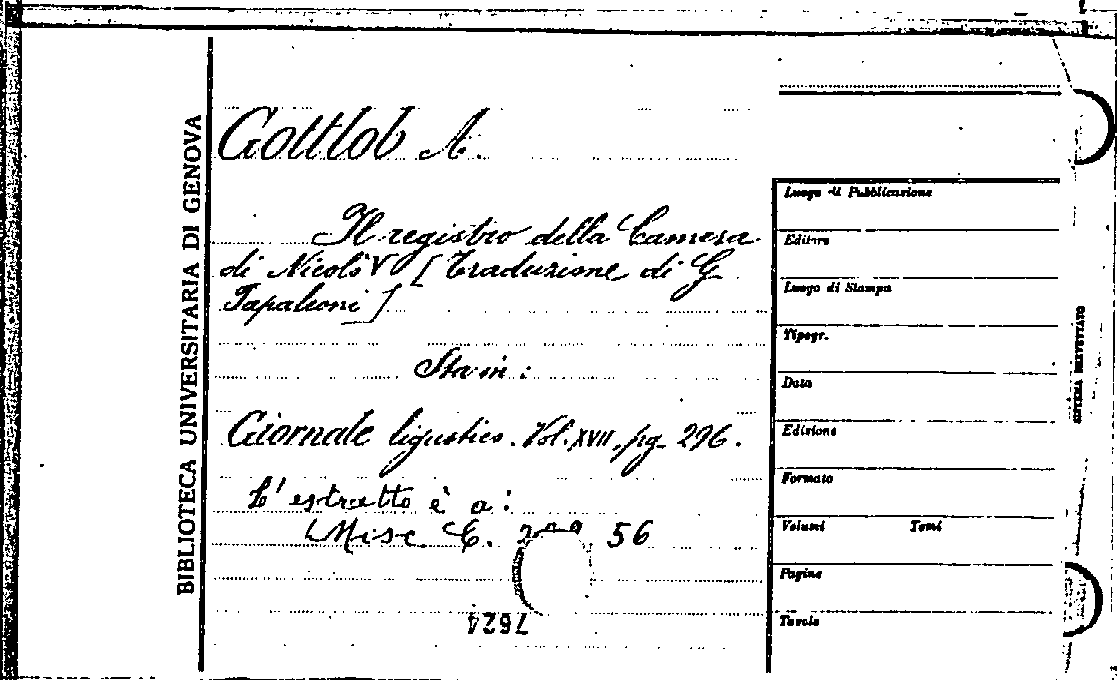 BIBLIOTECA UNIVERSITARIA DI GENOVA
Gottlob A.
Il registro della Camera
di Nicolò V [Traduzione di G
Papaleoni]
Sta in:
Giornale ligustico. Vol. XVII, pg. 296.
L'estratto è a:
Misc E. 56
7624
Luogo di Pubblicazione
Editore
Luogo di Stampa
Tipogr.
Data
Edizione
Formato
Volumi Tomi
Pagine
Tavole
SISTEMA BREVETTATO